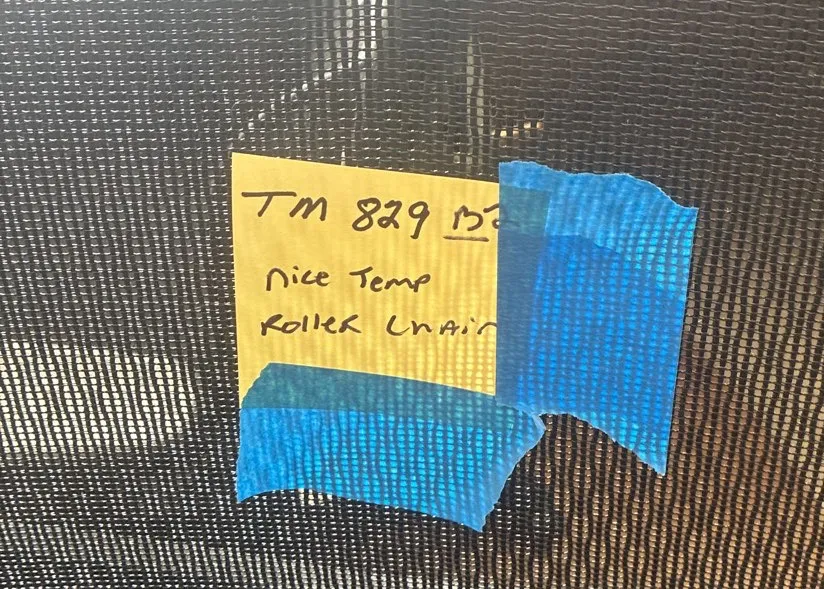 TM 829
nice Temp
Roller Chair